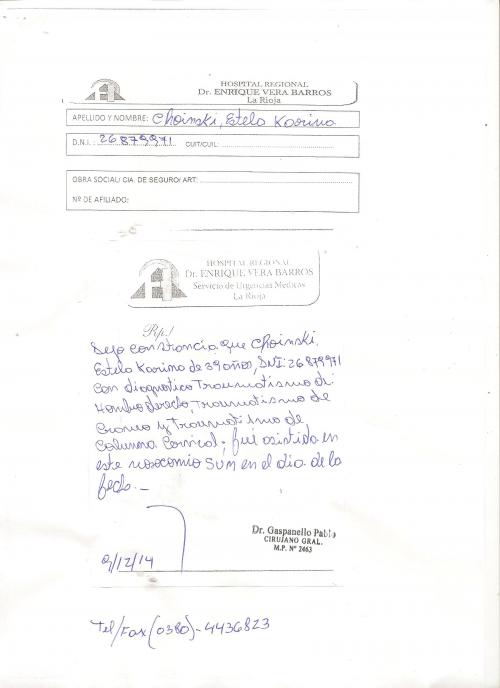 HOSPITAL REGIONAL
Dr. ENRIQUE VERA BARROS
La Rioja
APELLIDO Y NOMBRE: Choinski, Estela Karina
D.N.I.: 26879971 CUIT/CUIL:
OBRA SOCIAL/ CIA. DE SEGURO/ ART:
Nº DE AFILIADO:
HOSPITAL REGIONAL
Dr. ENRIQUE VERA BARROS
Servicio de Urgencias Médicas
La Rioja
Rp.!
Dejo constancia que Choinski,
Estela Karina de 39 años, DNI: 26879971
con diagnostico Traumatismo de
Hombro derecho, Traumatismo de
Craneo y Traumatismo de
Columna Cervical; fué asistida en
este nosocomio SUM en el dia de la
fecha._
Dr. Gaspanello Pablo
CIRUJANO GRAL.
M.P. Nº 2463
/12/14
Tel/Fax (0380)-4436823